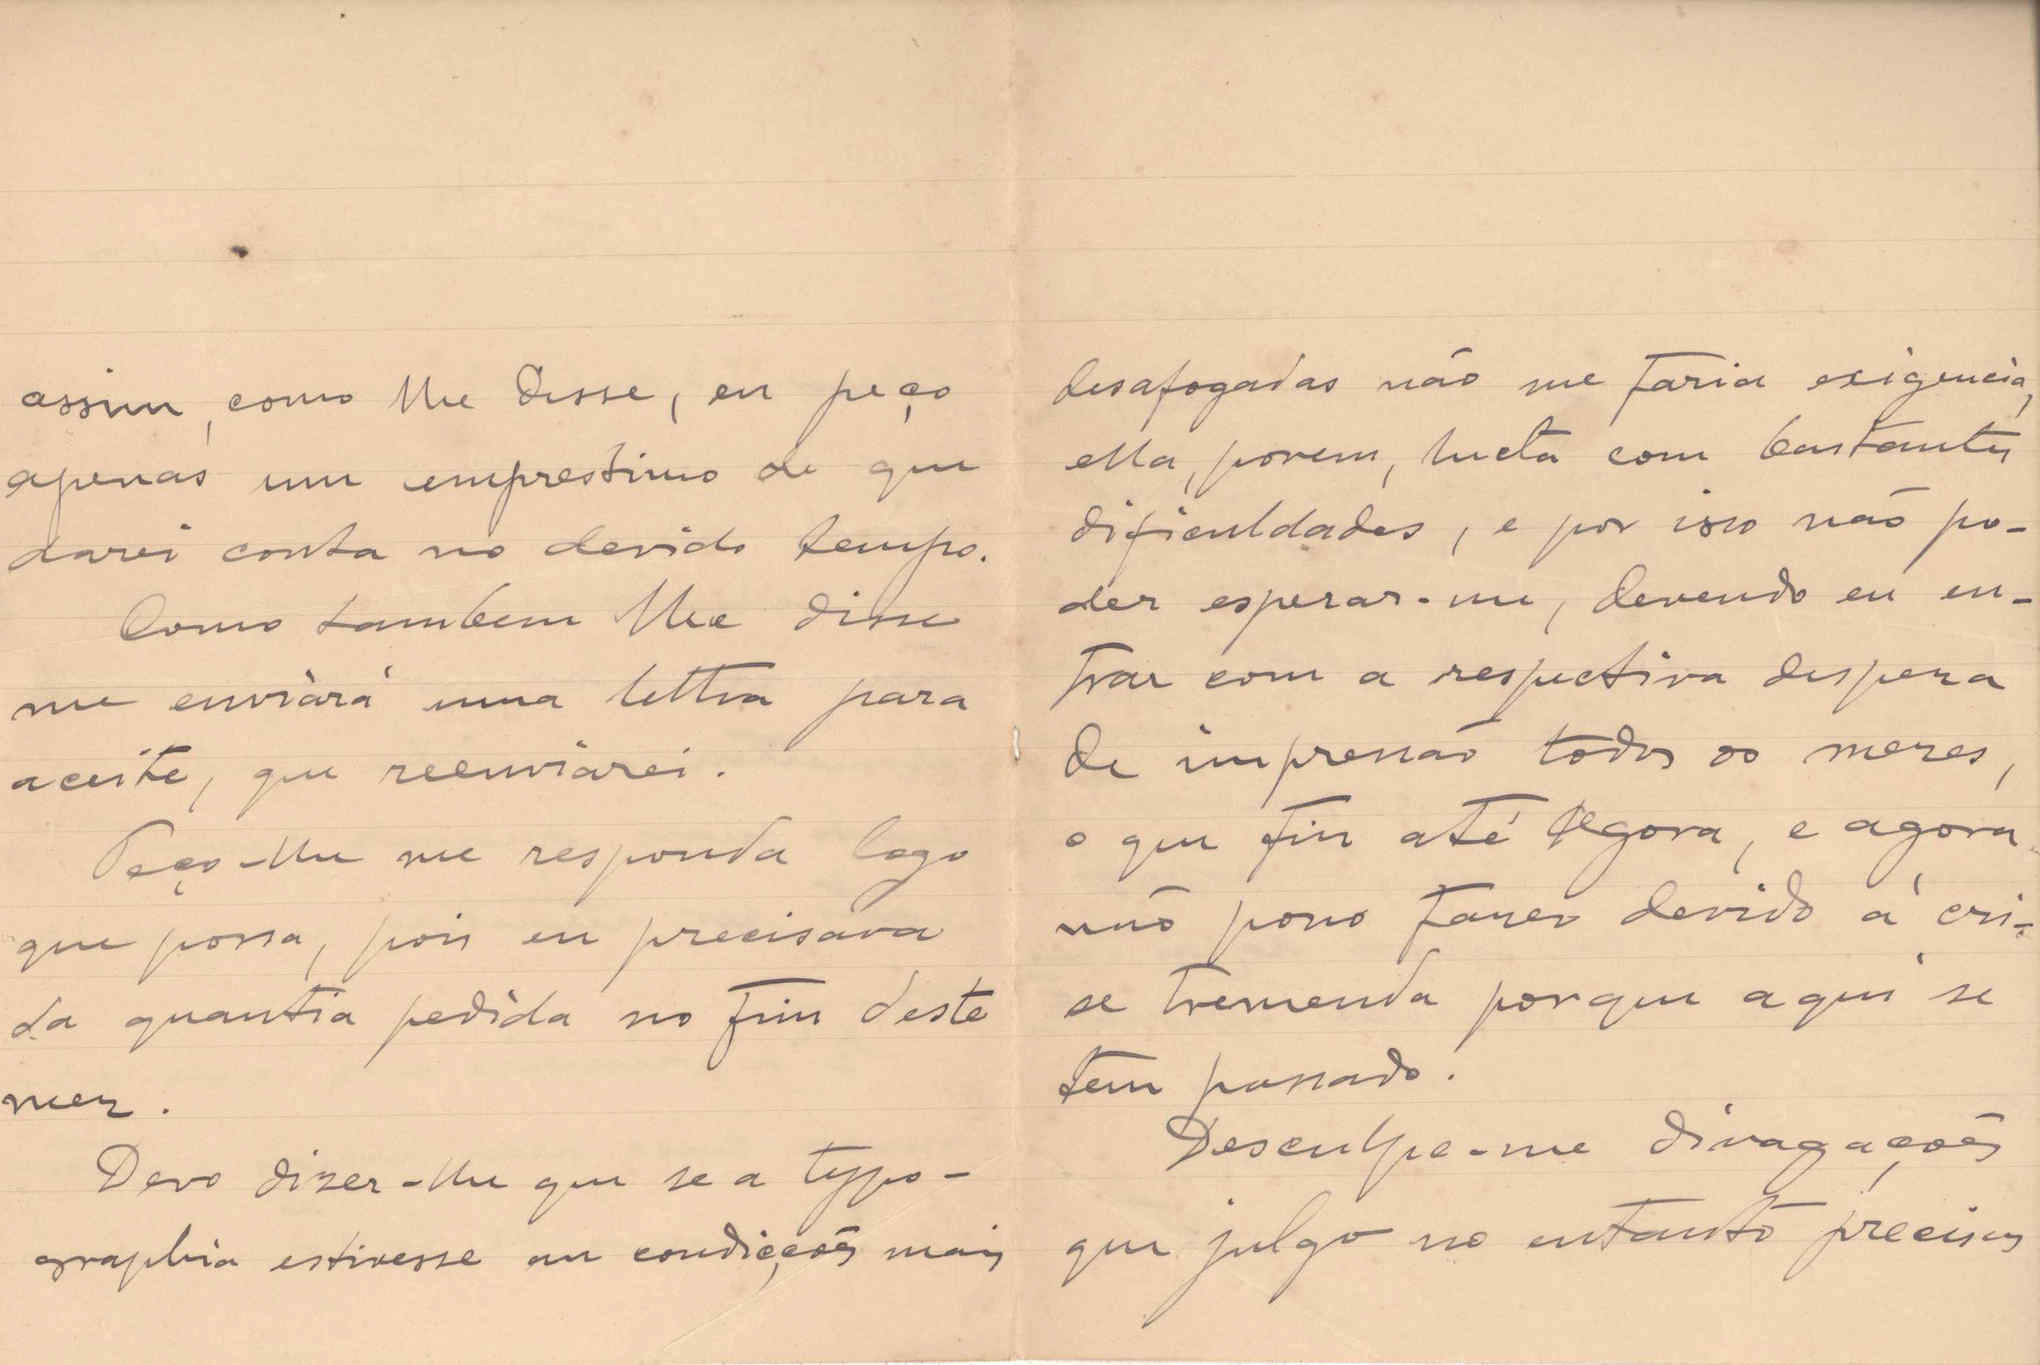 assim, como lhe disse, eu peço
apenas um emprestimo de que
darei conta no devido tempo.
Como tambem lhe disse
me enviàrá uma lettra para
aceite, que reenviarei.
Peço-lhe me responda logo
que possa, pois eu precisava
da quantia pedida no fim deste
mez.
Devo dizer-lhe que se a typo-
graphia estivesse em condicções mais
desafogadas não me faria exigencia,
ella, porem, lucta com bastantes
dificuldades, e por isso não po-
der esperar-me, devendo eu en-
trar com a respectiva despeza
de impressão todos os mezes,
o que fiz até Agora, e agora
não posso fazer devido á cri-
se tremenda porque aqui se
tem passado.
Desculpe-me divagações
que julgo no entanto precisas